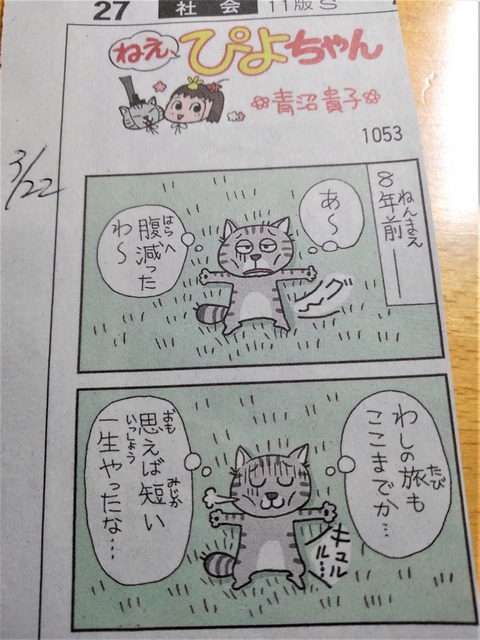 27
社会
11版S
ねえ、ぴよちゃん
青沼貴子
1053
3/22
8年前――
ねんまえ
あ〜
腹減った
はらへ
わ〜
グ〜
わしの旅も
たび
ここまでか…
思えば短い
おも
みじか
一生やったな…
いっしょう
キュル
ルル…